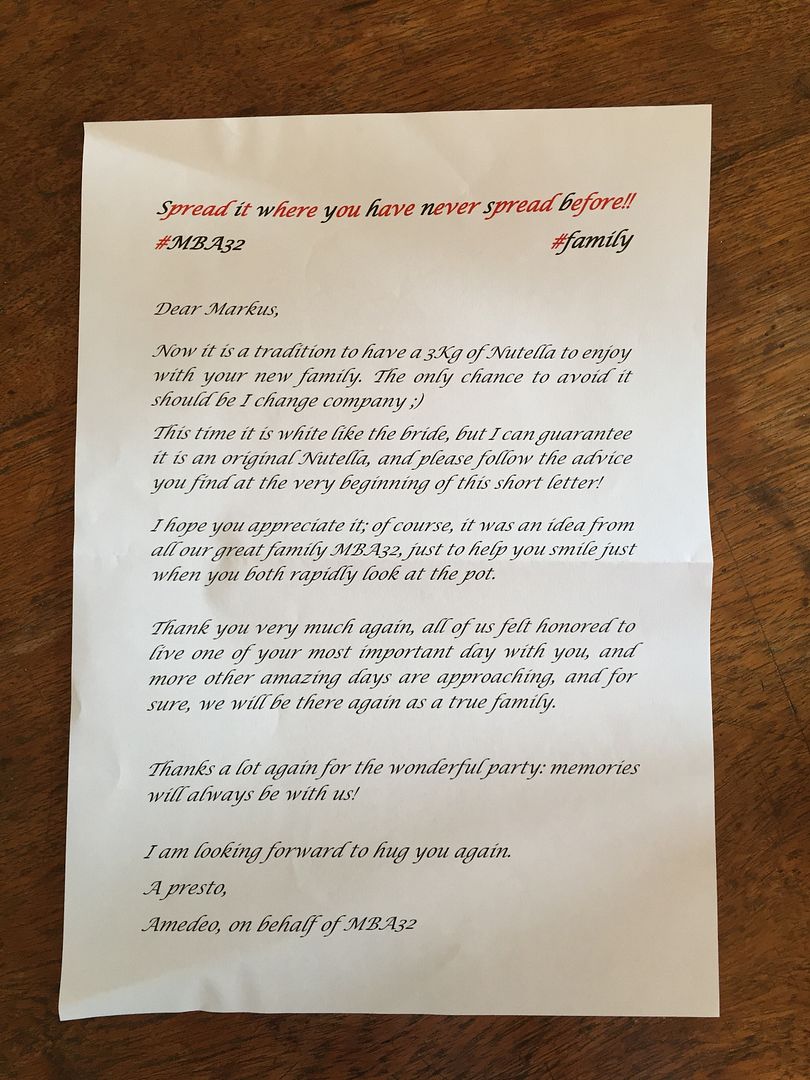 Spread it where you have never spread before!!
#MBA32 #family
Dear Markus,
Now it is a tradition to have a 3Kg of Nutella to enjoy
with your new family. The only chance to avoid it
should be I change company ;)
This time it is white like the bride, but I can guarantee
it is an original Nutella, and please follow the advice
you find at the very beginning of this short letter!
I hope you appreciate it; of course, it was an idea from
all our great family MBA32, just to help you smile just
when you both rapidly look at the pot.
Thank you very much again, all of us felt honored to
live one of your most important day with you, and
more other amazing days are approaching, and for
sure, we will be there again as a true family.
Thanks a lot again for the wonderful party: memories
will always be with us!
I am looking forward to hug you again.
A presto,
Amedeo, on behalf of MBA32